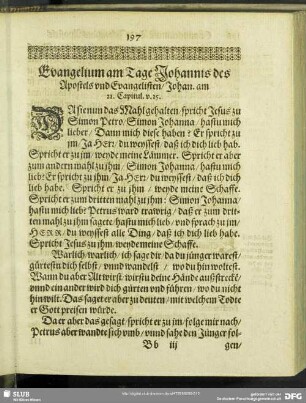 197
Evangelium am Tage Johannis des
Apostels vnd Evangelisten / Johan. am
21. Capitul. v. 15.
DA sie nun das Mahl gehalten / spricht Jesus zu
Simon Petro / Simon Johanna / hastu mich
lieber / Dann mich diese haben? Er spricht zu
jm / Ja HErr / du weyssest / daß ich dich lieb hab.
Spricht er zu jm / weyde meine Lämmer. Spricht er aber
zum andern mahl zu jhm / Simon Johanna / hastu mich
lieb? Er spricht zu jhm / Ja / HErr / du weyssest / daß ich dich
lieb habe. Spricht er zu jhm / weyde meine Schaffe.
Spricht er zum dritten mahl zu jhm: Simon Johanna /
hastu mich lieb? Petrus ward trawrig / daß er zum drit-
ten mahl zu jhm sagete / hastu mich lieb / vnd sprach zu jm /
HERR / du weyssest alle Ding / daß ich dich lieb hab.
Spricht Jesus zu jhm / weyde meine Schaffe.
Warlich / warlich / ich sage dir / da du jünger warest /
gürtestu dich selbst / vnnd wandelst / wo du hin woltest.
Wann du aber Alt wirst / wirstu deine Hände außstrecke /
vnnd ein ander wird dich gürten vnd führen / wo du nicht
hin wilt. Das saget er aber zu deuten / mit welchem Todte
er Gott preisen würde.
Da er aber das gesagt / spricht er zu jm / folge mir nach /
Petrus aber wandte sich vmb / vnnd sahe den Jünger fol-
Bb iij
gen/
SLUB
Wir führen Wissen.
gefördert von der
Deutschen Forschungsgemeinschaft
DFG